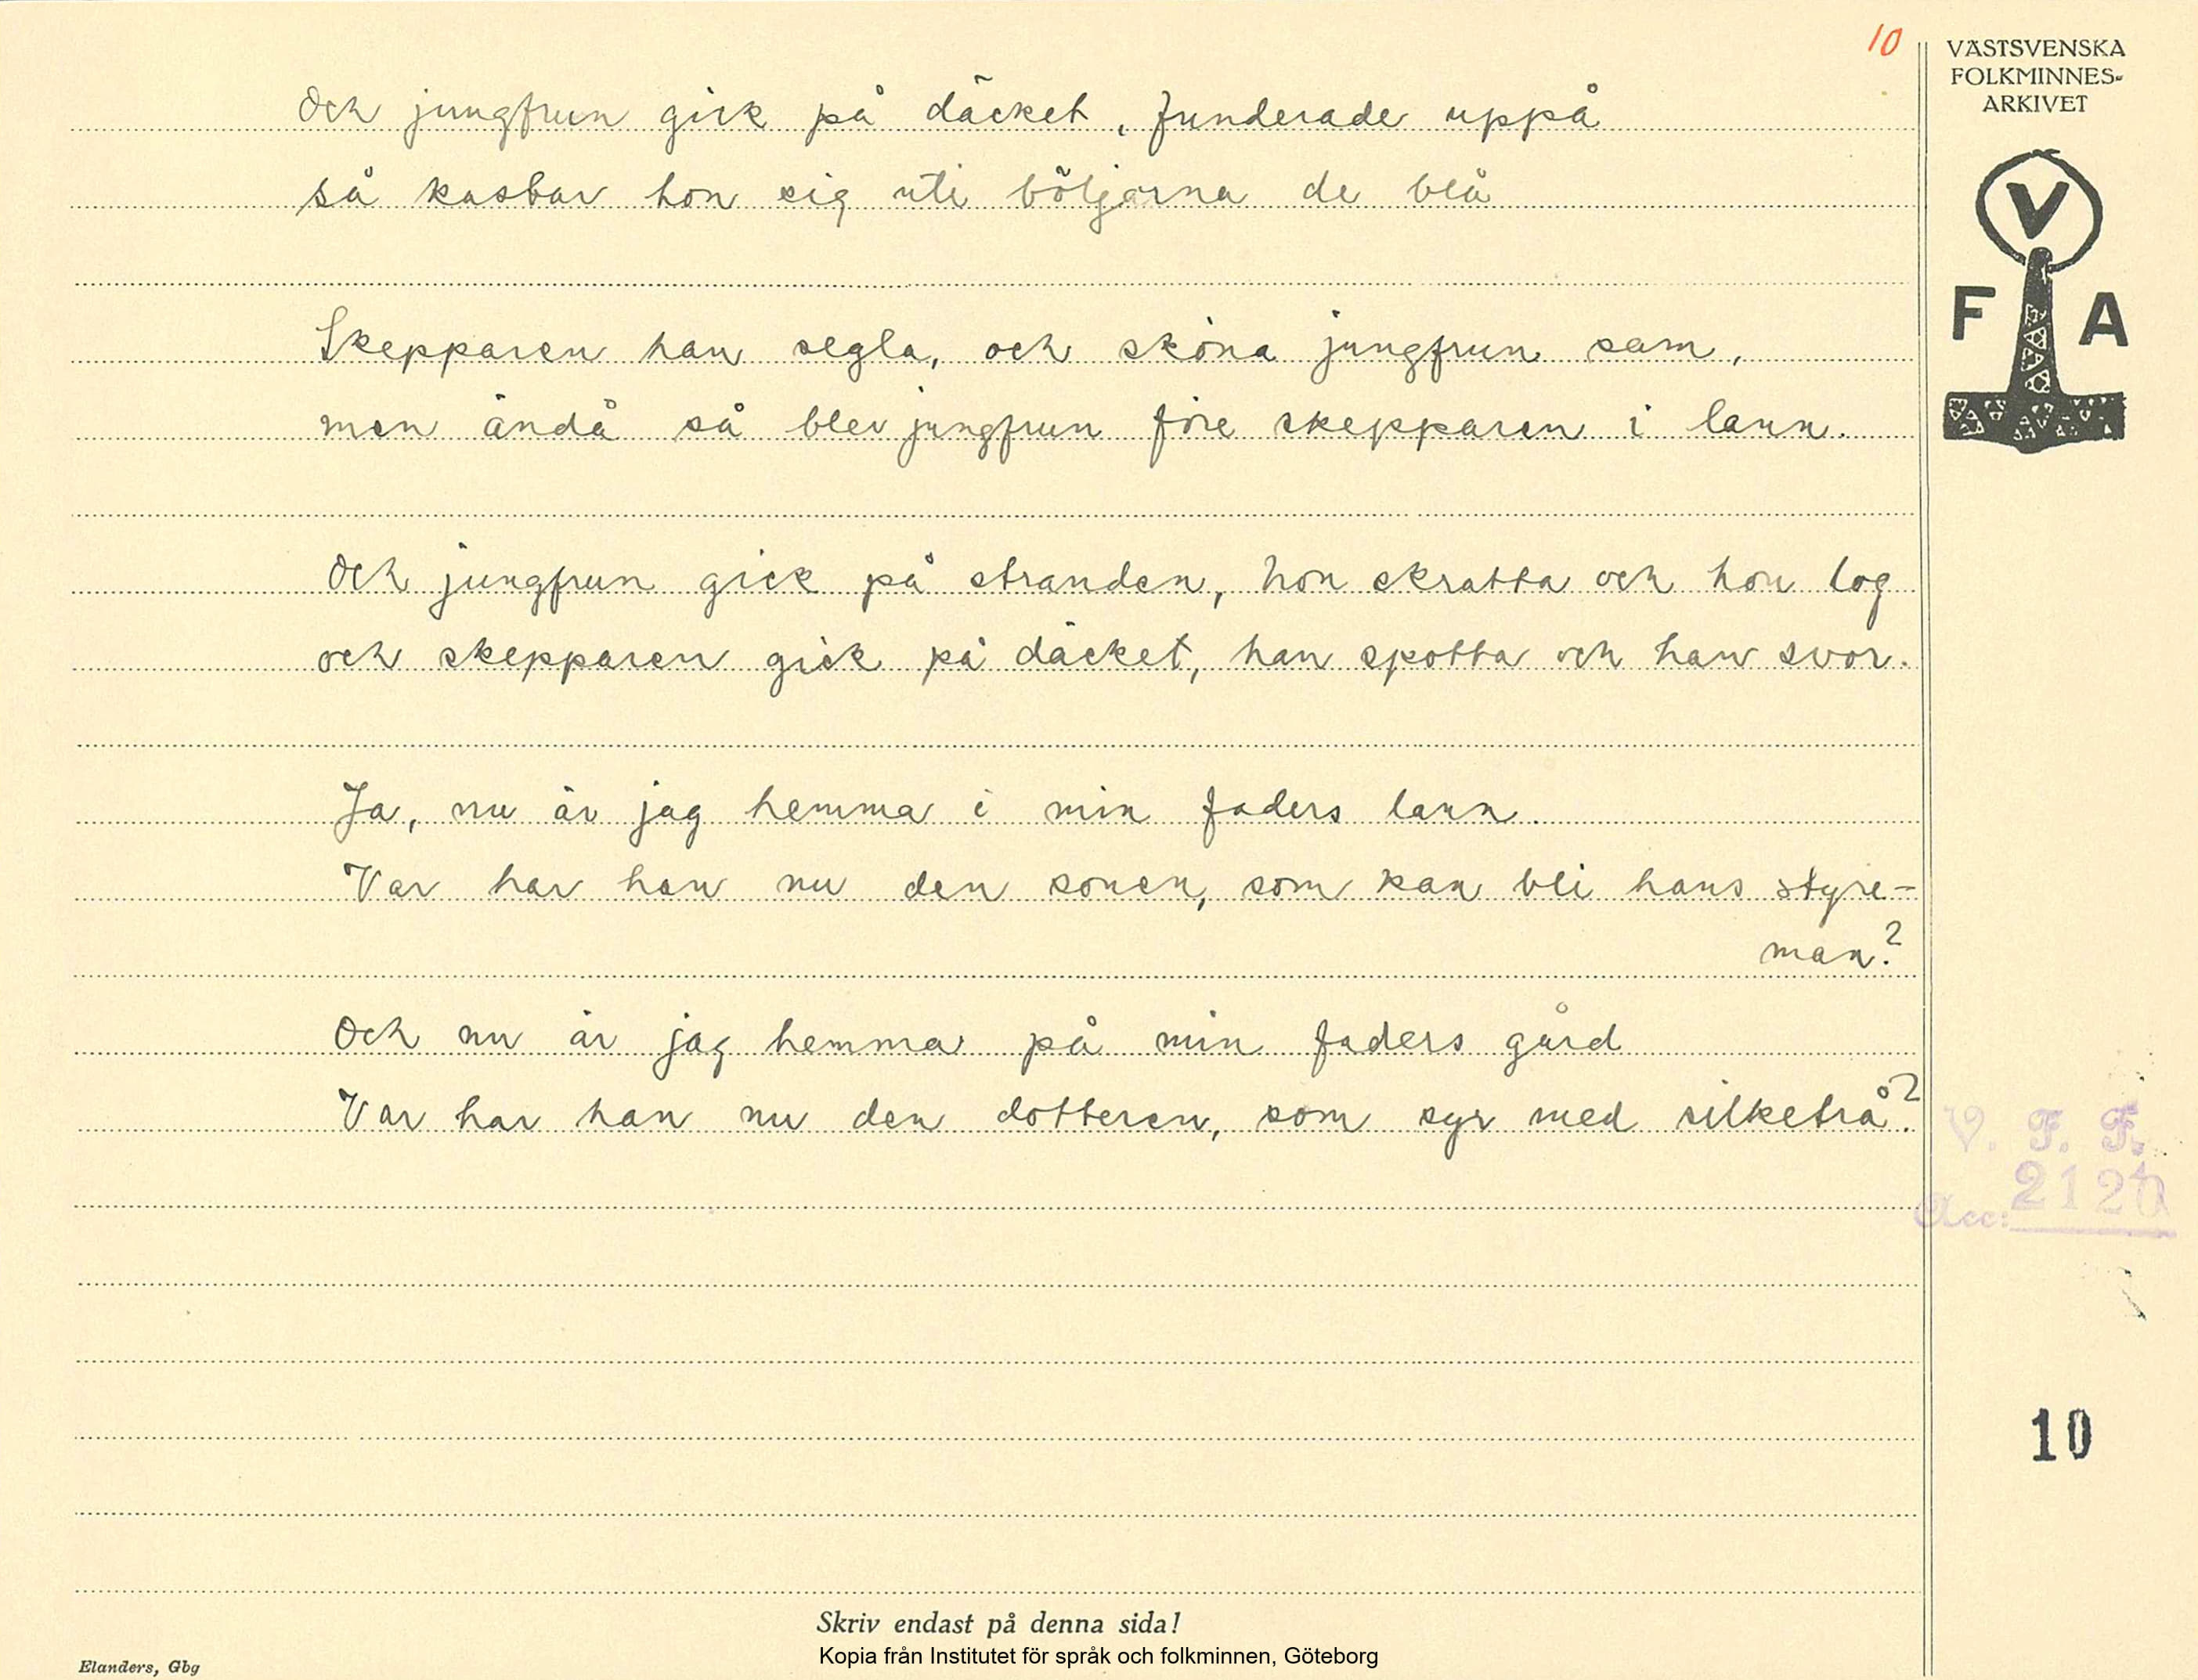 10
VÄSTSVENSKA
FOLKMINNES-
ARKIVET
V
F A
Och jungfrun gick på däcket, funderade uppå
så kastar hon sig uti böljorna de blå
Skepparen han segla, och sköna jungfrun sam,
men ändå så blev jungfrun före skepparen i lann.
Och jungfrun gick på stranden, hon skratta och hon log
och skepparen gick på däcket, han spotta och han svor.
Ja, nu är jag hemma i min faders lann.
Var har han nu den sonen, som kan bli hans styre-
man?
Och nu är jag hemma på min faders gård
Var har han nu den dotteren, som syr med silketrå?
V. F. F.
Acc:
10
Skriv endast på denna sida!
Kopia från Institutet för språk och folkminnen, Göteborg
Elanders, Gbg